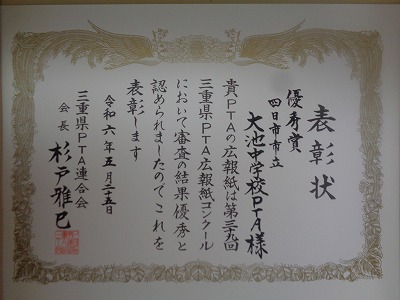 表彰状
優秀賞
四日市市立
大池中学校PTA様
貴PTAの広報紙は第三九回
三重県PTA広報紙コンクール
において審査の結果優秀と
認められましたのでこれを
表彰します
令和六年五月二十五日
三重県PTA連合会
会長 杉戸雅巳